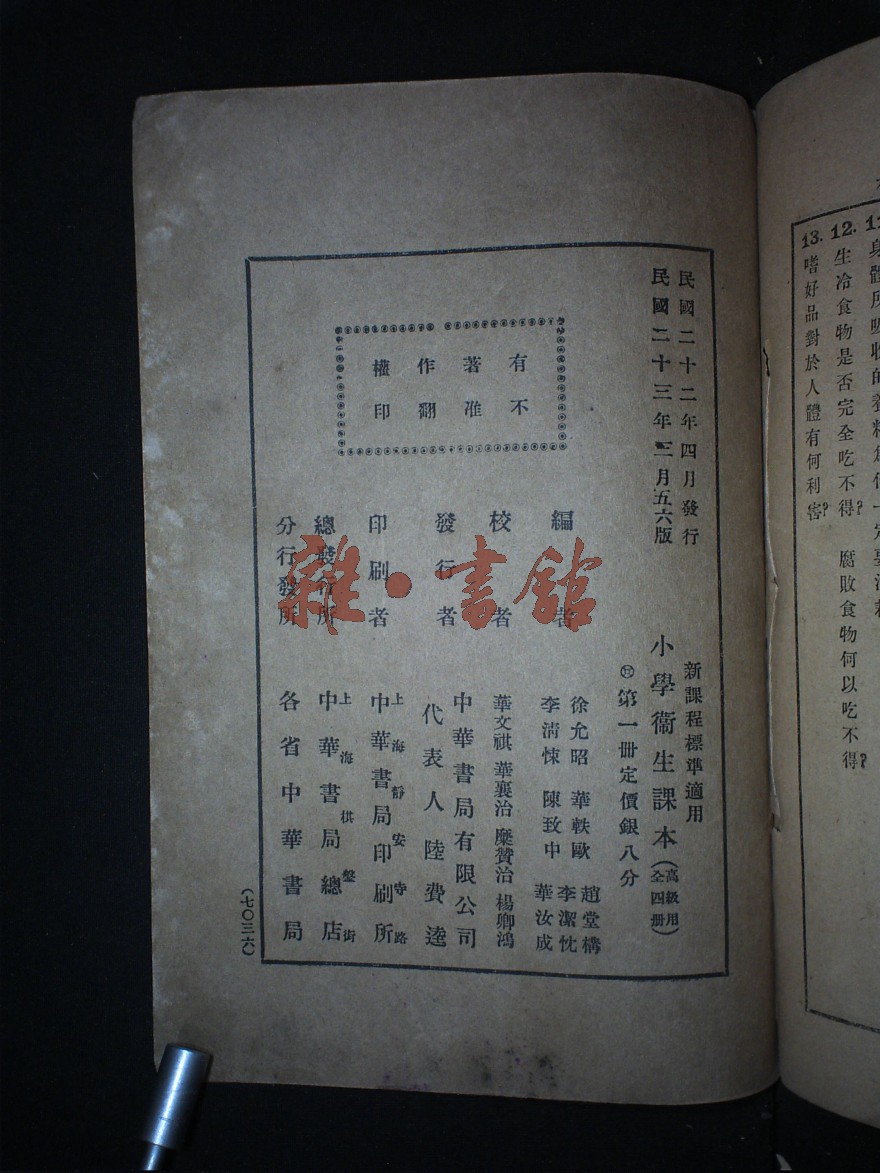 12. 生冷食物是否完全吃不得? 腐敗食物何以吃不得?
13. 嗜好品對於人體有何利害?
民國二十二年四月發行
民國二十三年二月五六版
新課程標準適用
小學衞生課本(高級用 全四册)
第一册定價銀八分
有著作權
不准翻印
編者
徐允昭 華軼歐 趙堂構
李清悚 陳致中 李潔忱
華汝成
校者
華文祺 華襄治 糜贊治 楊卿鴻
發行者
中華書局有限公司
代表人 陸費逵
印刷者
上海靜安寺路
中華書局印刷所
總發行所
上海棋盤街
中華書局總店
分行發所
各省中華書局
(七〇三六)
雜·書館